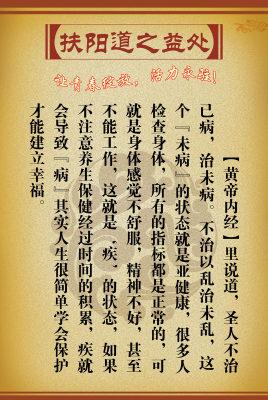 扶阳道之益处
让青春绽放，活力永驻!
【黄帝内经】里说道，圣人不治
已病，治未病。不治以乱治未乱，这
个『未病』的状态就是亚健康，很多人
检查身体，所有的指标都是正常的，可
就是身体感觉不舒服，精神不好，甚至
不能工作，这就是‘疾’的状态，如果
不注意养生保健经过时间的积累，疾就
会导致『病』其实人生很简单学会保护
才能建立幸福。